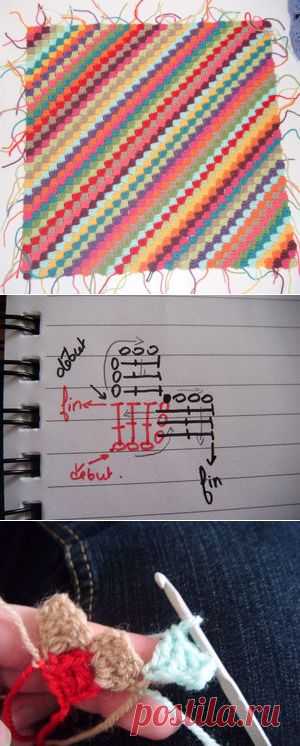 début
fin
début.
fin
postila.ru